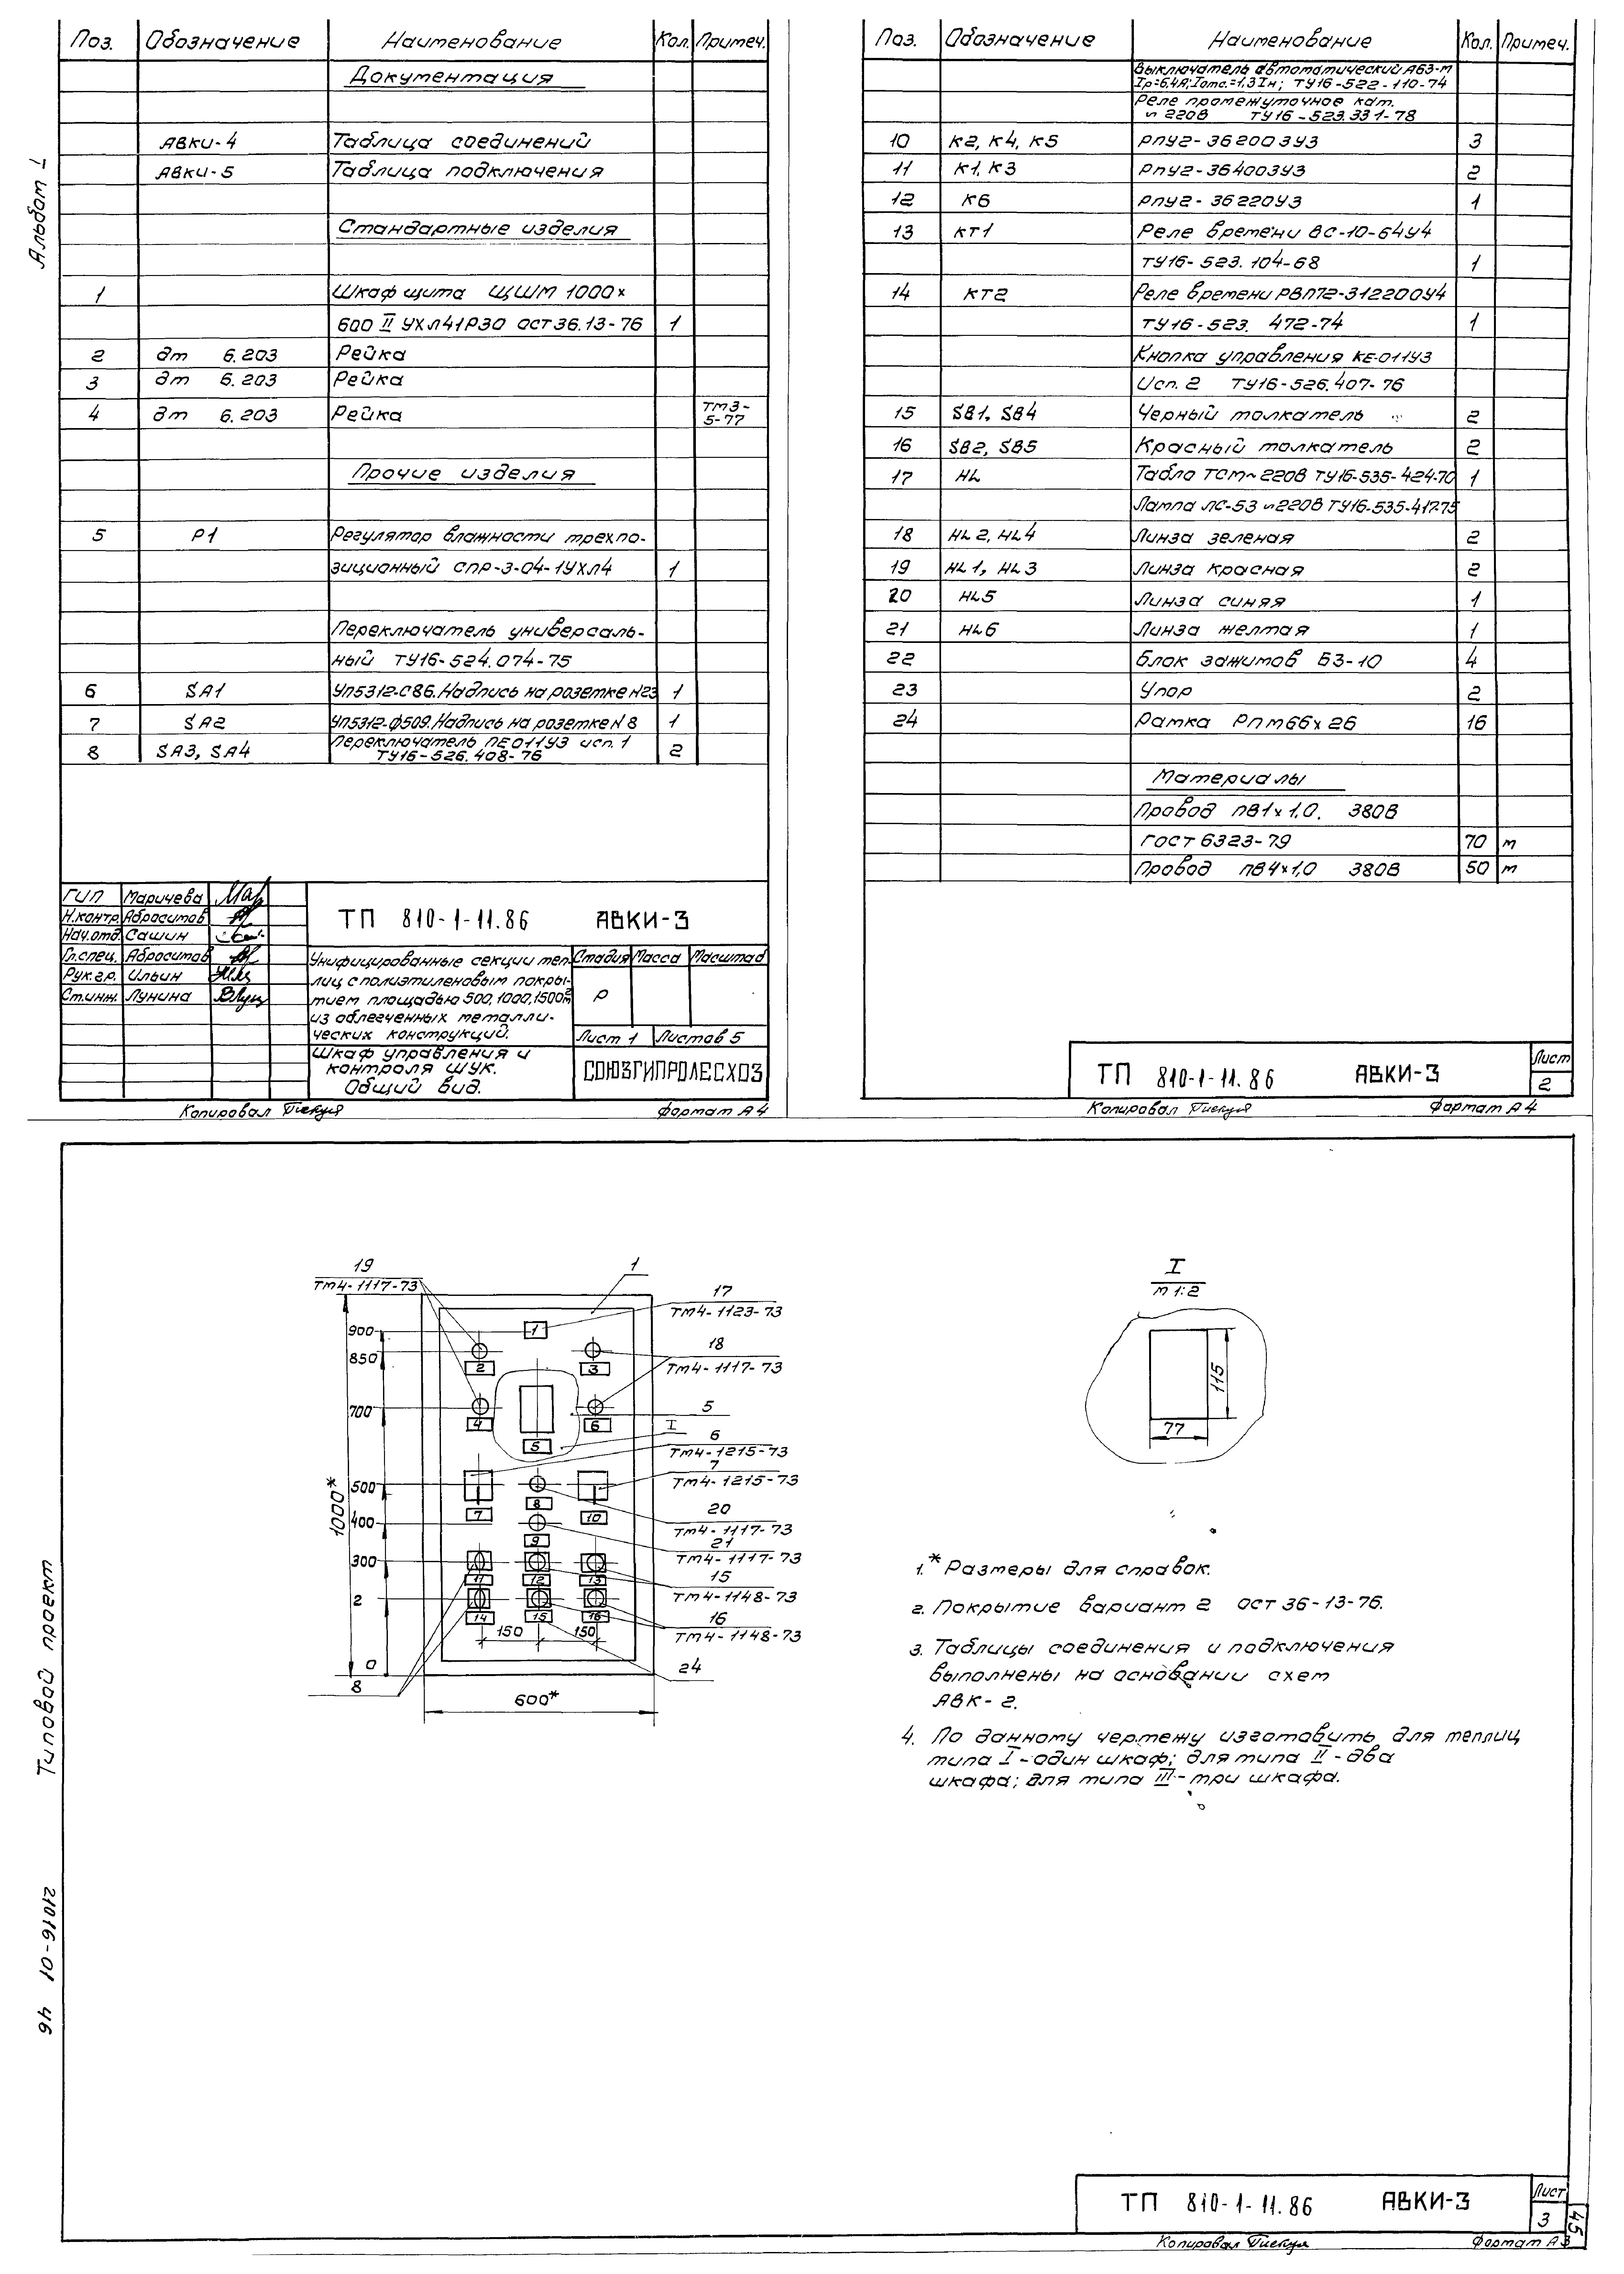 Альбом I
Поз. Обозначение Наименование Кол. Примеч.
Документация
АВКИ-4 Таблица соединений
АВКИ-5 Таблица подключения
Стандартные изделия
1 Шкаф щита ЩШМ 1000х
600 II УХЛ41Р30 ОСТ36.13-76 1
2 дт 6.203 Рейка
3 дт 6.203 Рейка
4 дт 6.203 Рейка ТМ3-
5-77
Прочие изделия
5 Р1 Регулятор влажности трехпо-
зиционный СПР-3-04-1УХЛ4 1
Переключатель универсаль-
ный ТУ16-524.074-75
6 SA1 УП5312-С86. Надпись на розетке N23 1
7 SA2 УП5312-Ф509. Надпись на розетке N8 1
8 SA3, SA4 Переключатель ПЕ011У3 исп. 1
ТУ16-526.408-76 2
ГИП Маричева
Н.контр. Абросимов
Нач.отд. Сашин
Гл.спец. Абросимов
Рук.гр. Ильин
Ст.инж. Лунина
ТП 810-1-11.86 АВКИ-3
Унифицированные секции теп-
лиц с полиэтиленовым покры-
тием площадью 500, 1000, 1500м²
из облегченных металли-
ческих конструкций.
Стадия Масса Масштаб
Р
Лист 1 Листов 5
Шкаф управления и
контроля ШУК.
Общий вид.
СОЮЗГИПРОЛЕСХОЗ
Копировал Формат А4
Поз. Обозначение Наименование Кол. Примеч.
Выключатель автоматический А63-М
Iр=6,4А; Iотс.=1,3Iн; ТУ16-522-110-74
Реле промежуточное кат.
~ 220В ТУ16-523.331-78
10 К2, К4, К5 РПУ2-362003У3 3
11 К1, К3 РПУ2-364003У3 2
12 К6 РПУ2-36220У3 1
13 КТ1 Реле времени ВС-10-64У4
ТУ16-523.104-68 1
14 КТ2 Реле времени РВП72-312200У4
ТУ16-523. 472-74 1
Кнопка управления КЕ-011У3
Исп. 2 ТУ16-526.407-76
15 SB1, SB4 Черный толкатель 2
16 SB2, SB5 Красный толкатель 2
17 HL Табло ТСМ ~220В ТУ16-535-424-70 1
Лампа ЛС-53 ~220В ТУ16-535-417-75
18 HL2, HL4 Линза зеленая 2
19 HL1, HL3 Линза красная 2
20 HL5 Линза синяя 1
21 HL6 Линза желтая 1
22 Блок зажимов БЗ-10 4
23 Упор 2
24 Рамка РПМ66х26 16
Материалы
Провод ПВ1х1,0. 380В
ГОСТ 6323-79 70 м
Провод ПВ4х1,0 380В 50 м
ТП 810-1-11.86 АВКИ-3
Лист
2
Копировал Формат А4
19
ТМ4-1117-73
1
17
ТМ4-1123-73
18
ТМ4-1117-73
5
I
6
ТМ4-1215-73
7
ТМ4-1215-73
20
ТМ4-1117-73
21
ТМ4-1117-73
15
ТМ4-1148-73
16
ТМ4-1148-73
24
8
900
850
700
500
400
300
2
0
1000*
600*
150 150
1
2 3
4 5 6
7 8 10
9
11 12 13
14 15 16
I
М 1:2
115
77
1.* Размеры для справок.
2. Покрытие вариант 2 ОСТ 36-13-76.
3. Таблицы соединения и подключения
выполнены на основании схем
АВК-2.
4. По данному чертежу изготовить для теплиц
типа I - один шкаф; для типа II - два
шкафа; для типа III - три шкафа.
Типовой проект
21016-01 46
ТП 810-1-11.86 АВКИ-3
Лист
3
45
Копировал Формат А3